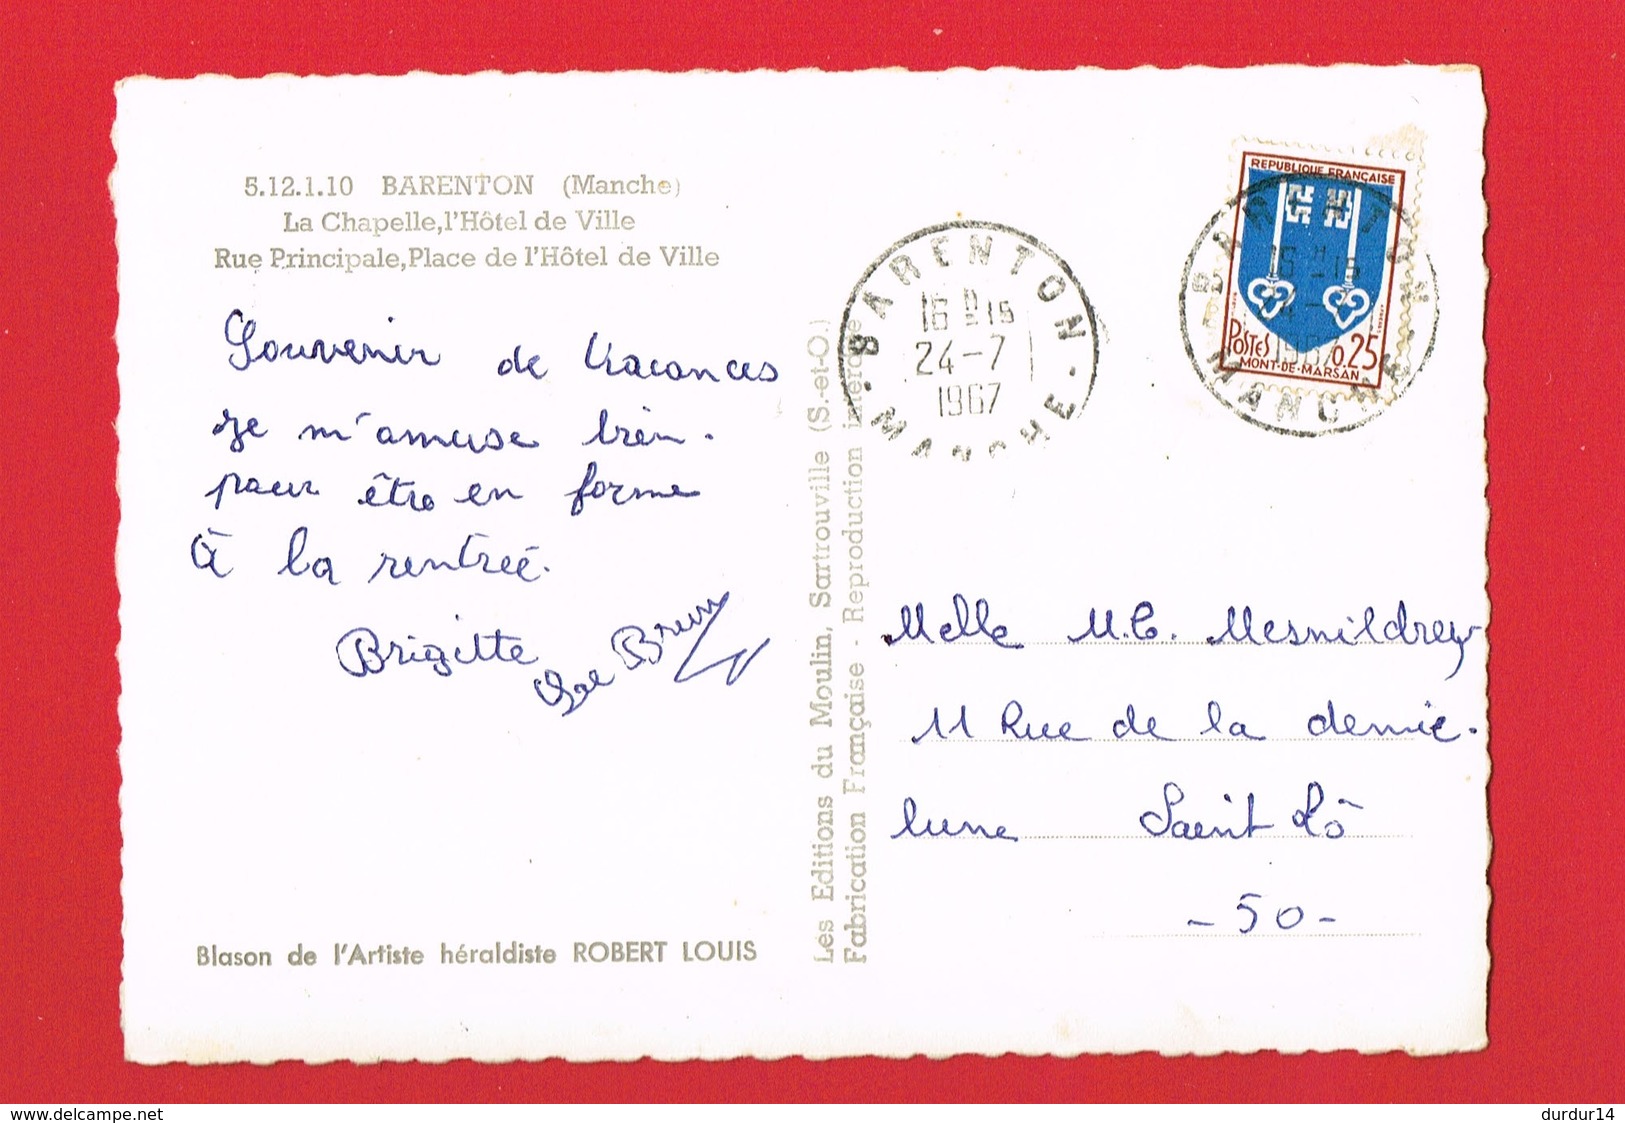 5.12.1.10 BARENTON (Manche)
La Chapelle, l'Hôtel de Ville
Rue Principale, Place de l'Hôtel de Ville
Souvenir de Vacances
Je m'amuse bien.
pour être en forme
à la rentrée.
Brigitte
Brun
Blason de l'Artiste héraldiste ROBERT LOUIS
Les Editions du Moulin, Sartrouville (S.-et-O.)
Fabrication Française - Reproduction interdite
BARENTON
16 H 15
24-7
1967
MANCHE
REPUBLIQUE FRANÇAISE
POSTES 0,25
MONT-DE-MARSAN
BARENTON
16 H 15
24-
1967
MANCHE
Melle M.C. Mesnildrey
11 Rue de la demie.
lune Saint Lô
- 50 -
www.delcampe.net
durdur14